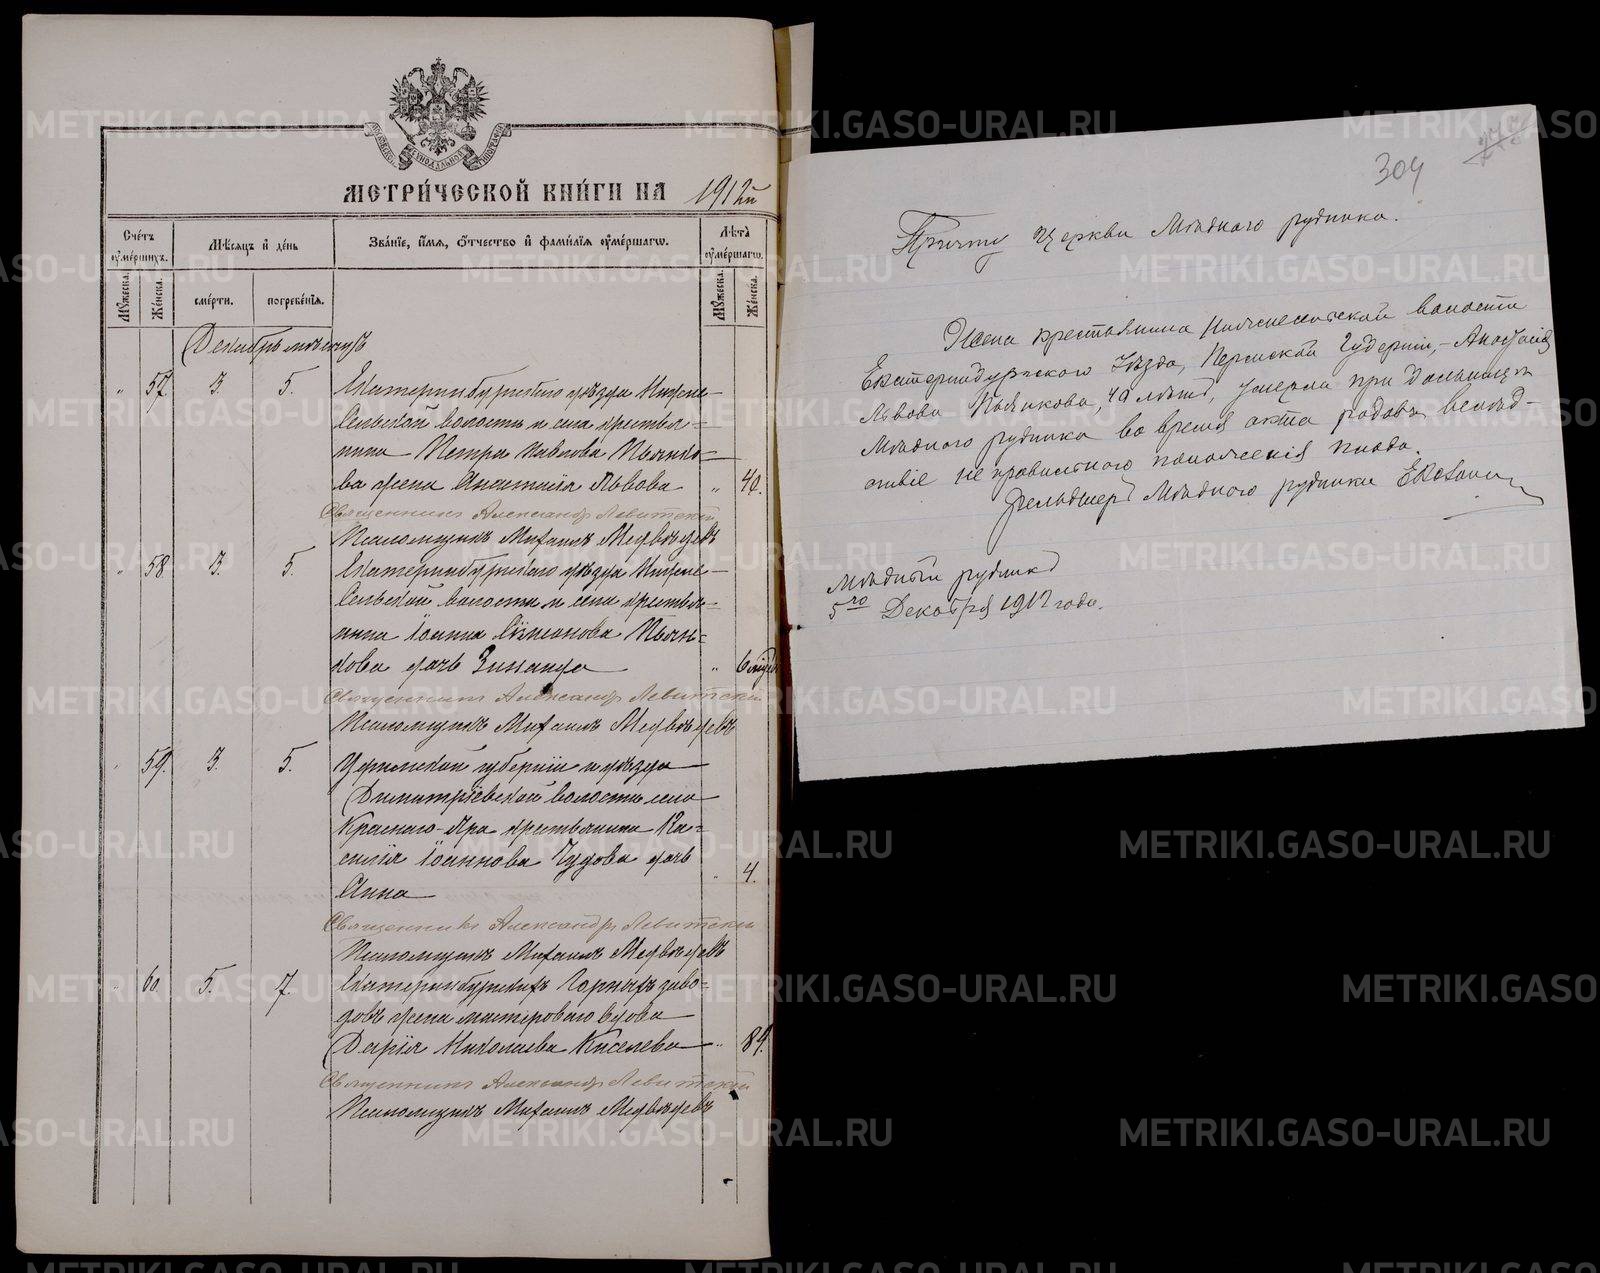 МЕТРИЧЕСКОЙ КНИГИ НА 1912й
Счетъ умершихъ.
Мѣсяцъ и день
Званіе, имя, отчество и фамилія умершаго.
Лѣта умершаго.
Мужеска.
Женска.
смерти.
погребенія.
Мужеска.
Женска.
Декабрь мѣсяцъ
57. 3. 5. Екатеринбургскаго уѣзда Нижне-
Сельской волости и села крестья-
нина Петра Павлова Пьянко-
ва жена Анастасія Львова 40.
Священникъ Александръ Левитскій
Псаломщикъ Михаилъ Медвѣдевъ
58. 3. 5. Екатеринбургскаго уѣзда Нижне-
Сельской волости и села крестья-
нина Іоанна Пьян-
кова дочь Зинаида 6 мѣс
Священникъ Александръ Левитскій
Псаломщикъ Михаилъ Медвѣдевъ
59. 3. 5. губерніи и уѣзда
Димитріевской волости села
Краснаго-Яра крестьянина Ва-
силія Іоаннова Чудова дочь
Анна 4.
Священникъ Александръ Левитскій
Псаломщикъ Михаилъ Медвѣдевъ
60. 5. 7. Екатеринбургскихъ Горныхъ заво-
довъ жена мастероваго вдова
Дарія Николаева Киселева 84.
Священникъ Александръ Левитскій
Псаломщикъ Михаилъ Медвѣдевъ
304
Причту церкви Мѣднаго рудника.
Жена крестьянина Нижнесельской волости
Екатеринбургскаго Уѣзда, Пермской Губерніи, - Анастасія
Львова Пьянкова, 40 лѣтъ, умерла при больницѣ
Мѣднаго рудника во время акта родовъ вслѣд-
ствіе не правильнаго положенія плода.
Фельдшеръ Мѣднаго рудника
Мѣдный рудникъ
5го Декабря 1912 года.
METRIKI.GASO-URAL.RU